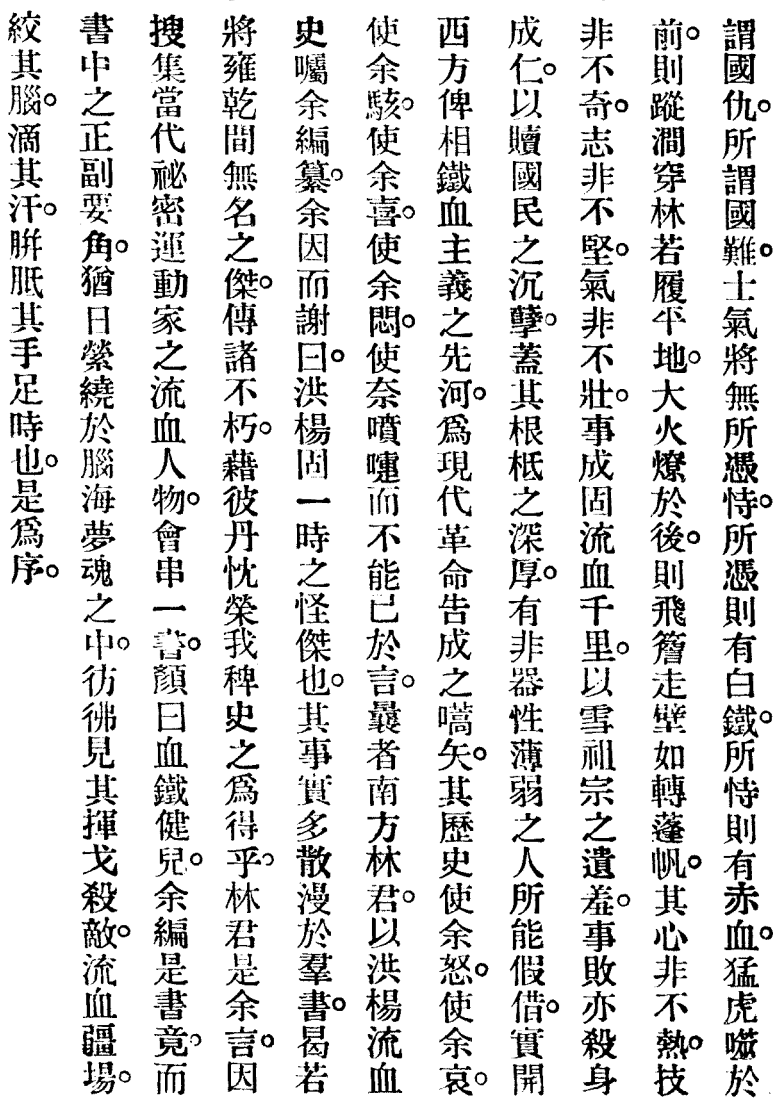 謂國仇。所謂國難。士氣將無所憑恃。所憑則有白鐵。所恃則有赤血。猛虎噬於
前。則蹤澗穿林若履平地。大火燎於後。則飛簷走壁如轉蓬帆。其心非不熱。技
非不奇。志非不堅。氣非不壯。事成固流血千里。以雪祖宗之遺羞。事敗亦殺身
成仁。以贖國民之沉孽。蓋其根柢之深厚。有非器性薄弱之人所能假借。實開
西方俾相鐵血主義之先河。爲現代革命告成之嚆矢。其歷史使余怒。使余哀。
使余駭。使余喜。使余悶。使奈噴嚏而不能已於言。曩者南方林君。以洪楊流血
史囑余編纂。余因而謝曰。洪楊固一時之怪傑也。其事實多散漫於羣書。曷若
將雍乾間無名之傑。傳諸不朽。藉彼丹忱榮我稗史之爲得乎。林君是余言。因
搜集當代祕密運動家之流血人物。會串一書。顏曰血鐵健兒。余編是書竟。而
書中之正副要角。猶日縈繞於腦海夢魂之中。彷彿見其揮戈殺敵。流血疆場。
絞其腦。滴其汗。胼胝其手足時也。是爲序。